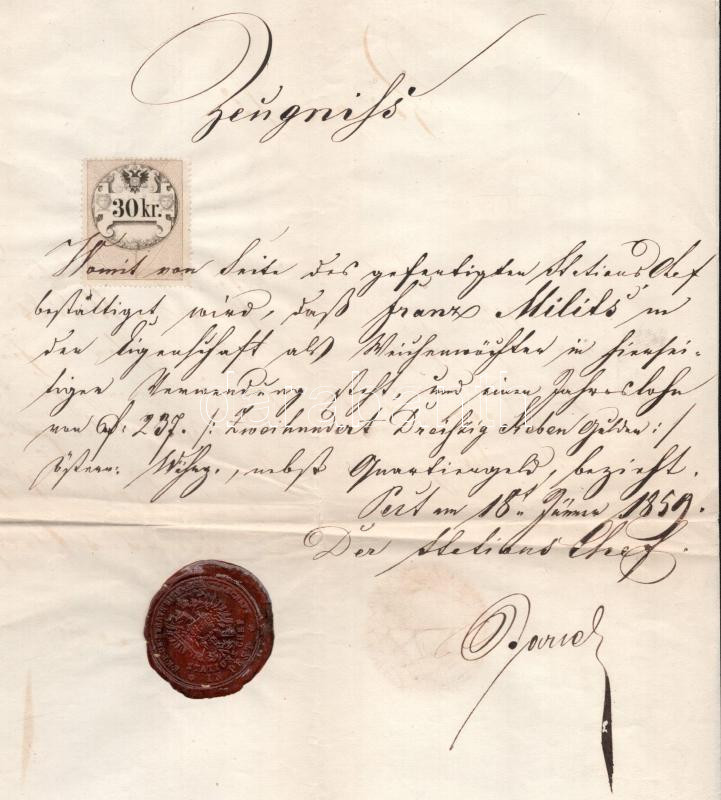 Zeugniss
30 kr.
Womit von Seite des gefertigten Stations Chef
bestättiget wird, daß Franz Milits in
der Eigenschaft als Weichenwächter in hiersei-
tiger Verwendung steht, und einen Jahreslohn
von f: 237. /: Zweihundert Dreißig Sieben Gulden :/
österr: Währg., nebst Quartiergeld, bezieht.
Pest am 18t Jänner 1859.
Der Stations Chef.
darabanth